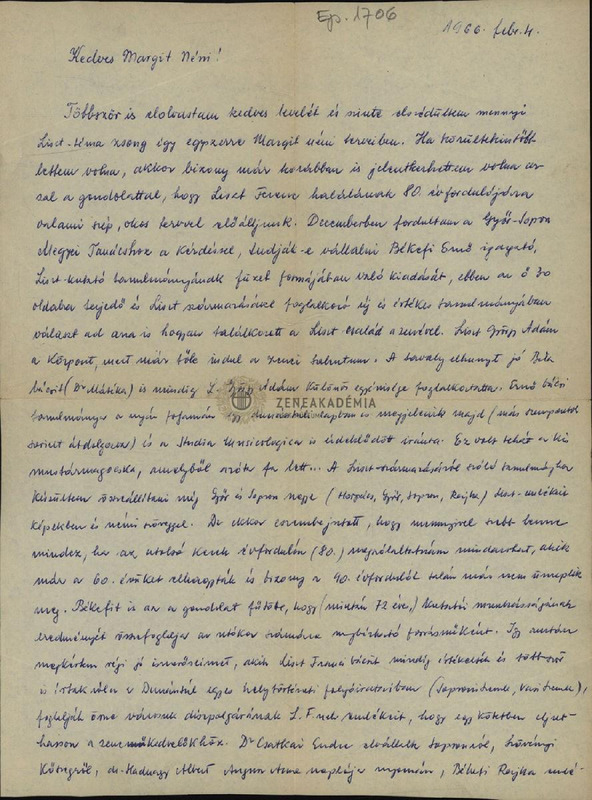 Ep. 1706
1966. febr. 4.
Kedves Margit Néni!
Többször is elolvastam kedves levelét és szinte elszédültem mennyi
Liszt-téma zsong így egyszerre Margit néni terveiben. Ha körültekintőbb
lettem volna, akkor bizony már korábban is jelentkezhettem volna az-
zal a gondolattal, hogy Liszt Ferenc halálának 80. évfordulójára
valami szép, okos tervvel előálljunk. Decemberben fordultam a Győr-Sopron
Megyei Tanácshoz a kérdéssel, tudják-e vállalni Békefi Ernő igazgató,
Liszt-kutató tanulmányának füzet formájában való kiadását, ebben az ő 30
oldalra terjedő és Liszt származásával foglalkozó új és értékes tanulmányában
választ ad arra is hogyan találkozott a Liszt család a zenével. Liszt György Ádám
a központ, mert már tőle indul a zenei talentum. A tavaly elhunyt jó Béla
bácsit (Dr Mátéka) is mindig L. Ádám különös egyénisége foglalkoztatta. Ernő bácsi
ZENEAKADÉMIA
tanulmánya a nyár folyamán is megjelenik majd (más szempontok
szerint átdolgozva) és a Studia Musicologica is érdeklődött iránta. Ez volt tehát a kis
mustármagocska, amelyből azóta fa lett... A Liszt-származásáról szóló tanulmányhoz
készültem összeállítani még Győr és Sopron megye (Horpács, Győr, Sopron, Rajka) Liszt-emlékeit
képekben és némi szöveggel. De ekkor eszembejutott, hogy mennyivel szebb lenne
mindez, ha az utolsó kerek évfordulón (80.) megszólaltatnám mindazokat, akik
már a 60. évüket elhagyták és bizony a 90. évfordulót talán már nem ünneplik
meg. Békefit is az a gondolat fűtötte, hogy (mintán 72 éves) kutatói munkásságának
eredményét összefoglalja az utókor számára megbízható forrásműként. Így aztán
megkértem régi jó ismerőseimet, akik Liszt Franci bácsit mindig értékelték és többször
is írtak róla a Dunántúl egyes helytörténeti folyóirataiban (Soproni Szemle, Vasi Szemle),
foglalják össze városunk díszpolgárának L. F.-nek emlékeit, hogy egy kötetben eljut-
hasson a zeneműkedvelőkhöz. Dr Csatkai Endre elvállalta Sopronról, Szövényi
Kőszegről, dr. Hadnagy Albert Augusz Anna naplója nyomán, Békefi Rajka emlé-